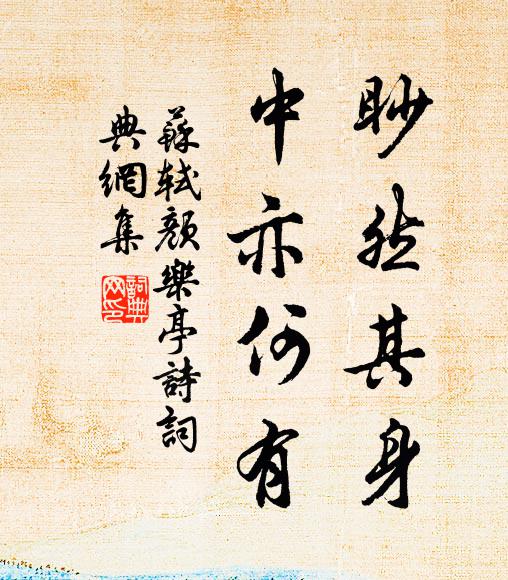 眇然其身
中亦何有
蘇軾顏樂亭詩詞
典網集
詞典
网印